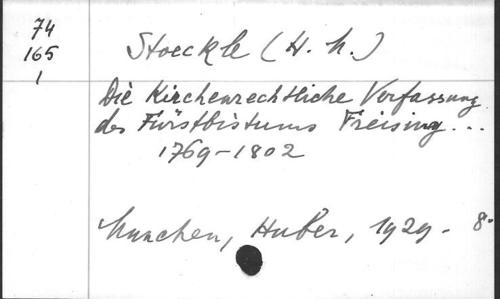 74
165
1
Stoeckle (H. M.)
Die Kirchenrechtliche Verfassung
des Fürstbistums Freising...
1769-1802
Munchen, Huber, 1929. - 8°